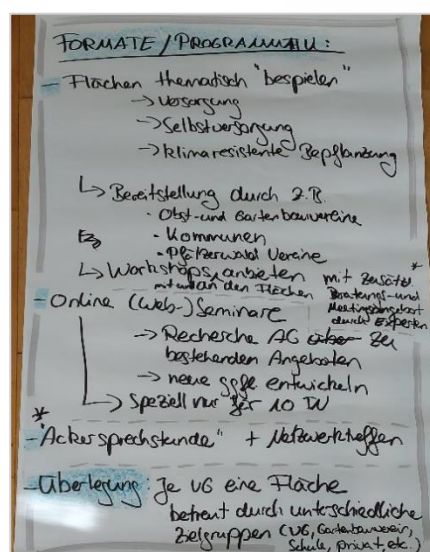 FORMATE / PROGRAMMATIK:
- Flächen thematisch "bespielen"
-> Versorgung
-> Selbstversorgung
-> klimaresistente Bepflanzung
-> Bereitstellung durch z.B.
· Obst- und Gartenbauvereine
· Kommunen
· Pfälzerwald Vereine
-> Workshops anbieten
mit und an den Flächen
* mit zusätzl.
Beratungs- und
Meetingsangebot
durch Experten
- Online (Web-) Seminare
-> Recherche AG über zu
bestehenden Angeboten
-> neue ggfl. entwickeln
-> Speziell nur für 10 TN
*
- "Ackersprechstunde" + Netzwerktreffen
- Überlegung: Je VG eine Fläche
betreut durch unterschiedliche
Zielgruppen (VG, Gartenbauverein,
Schule, privat, etc.)